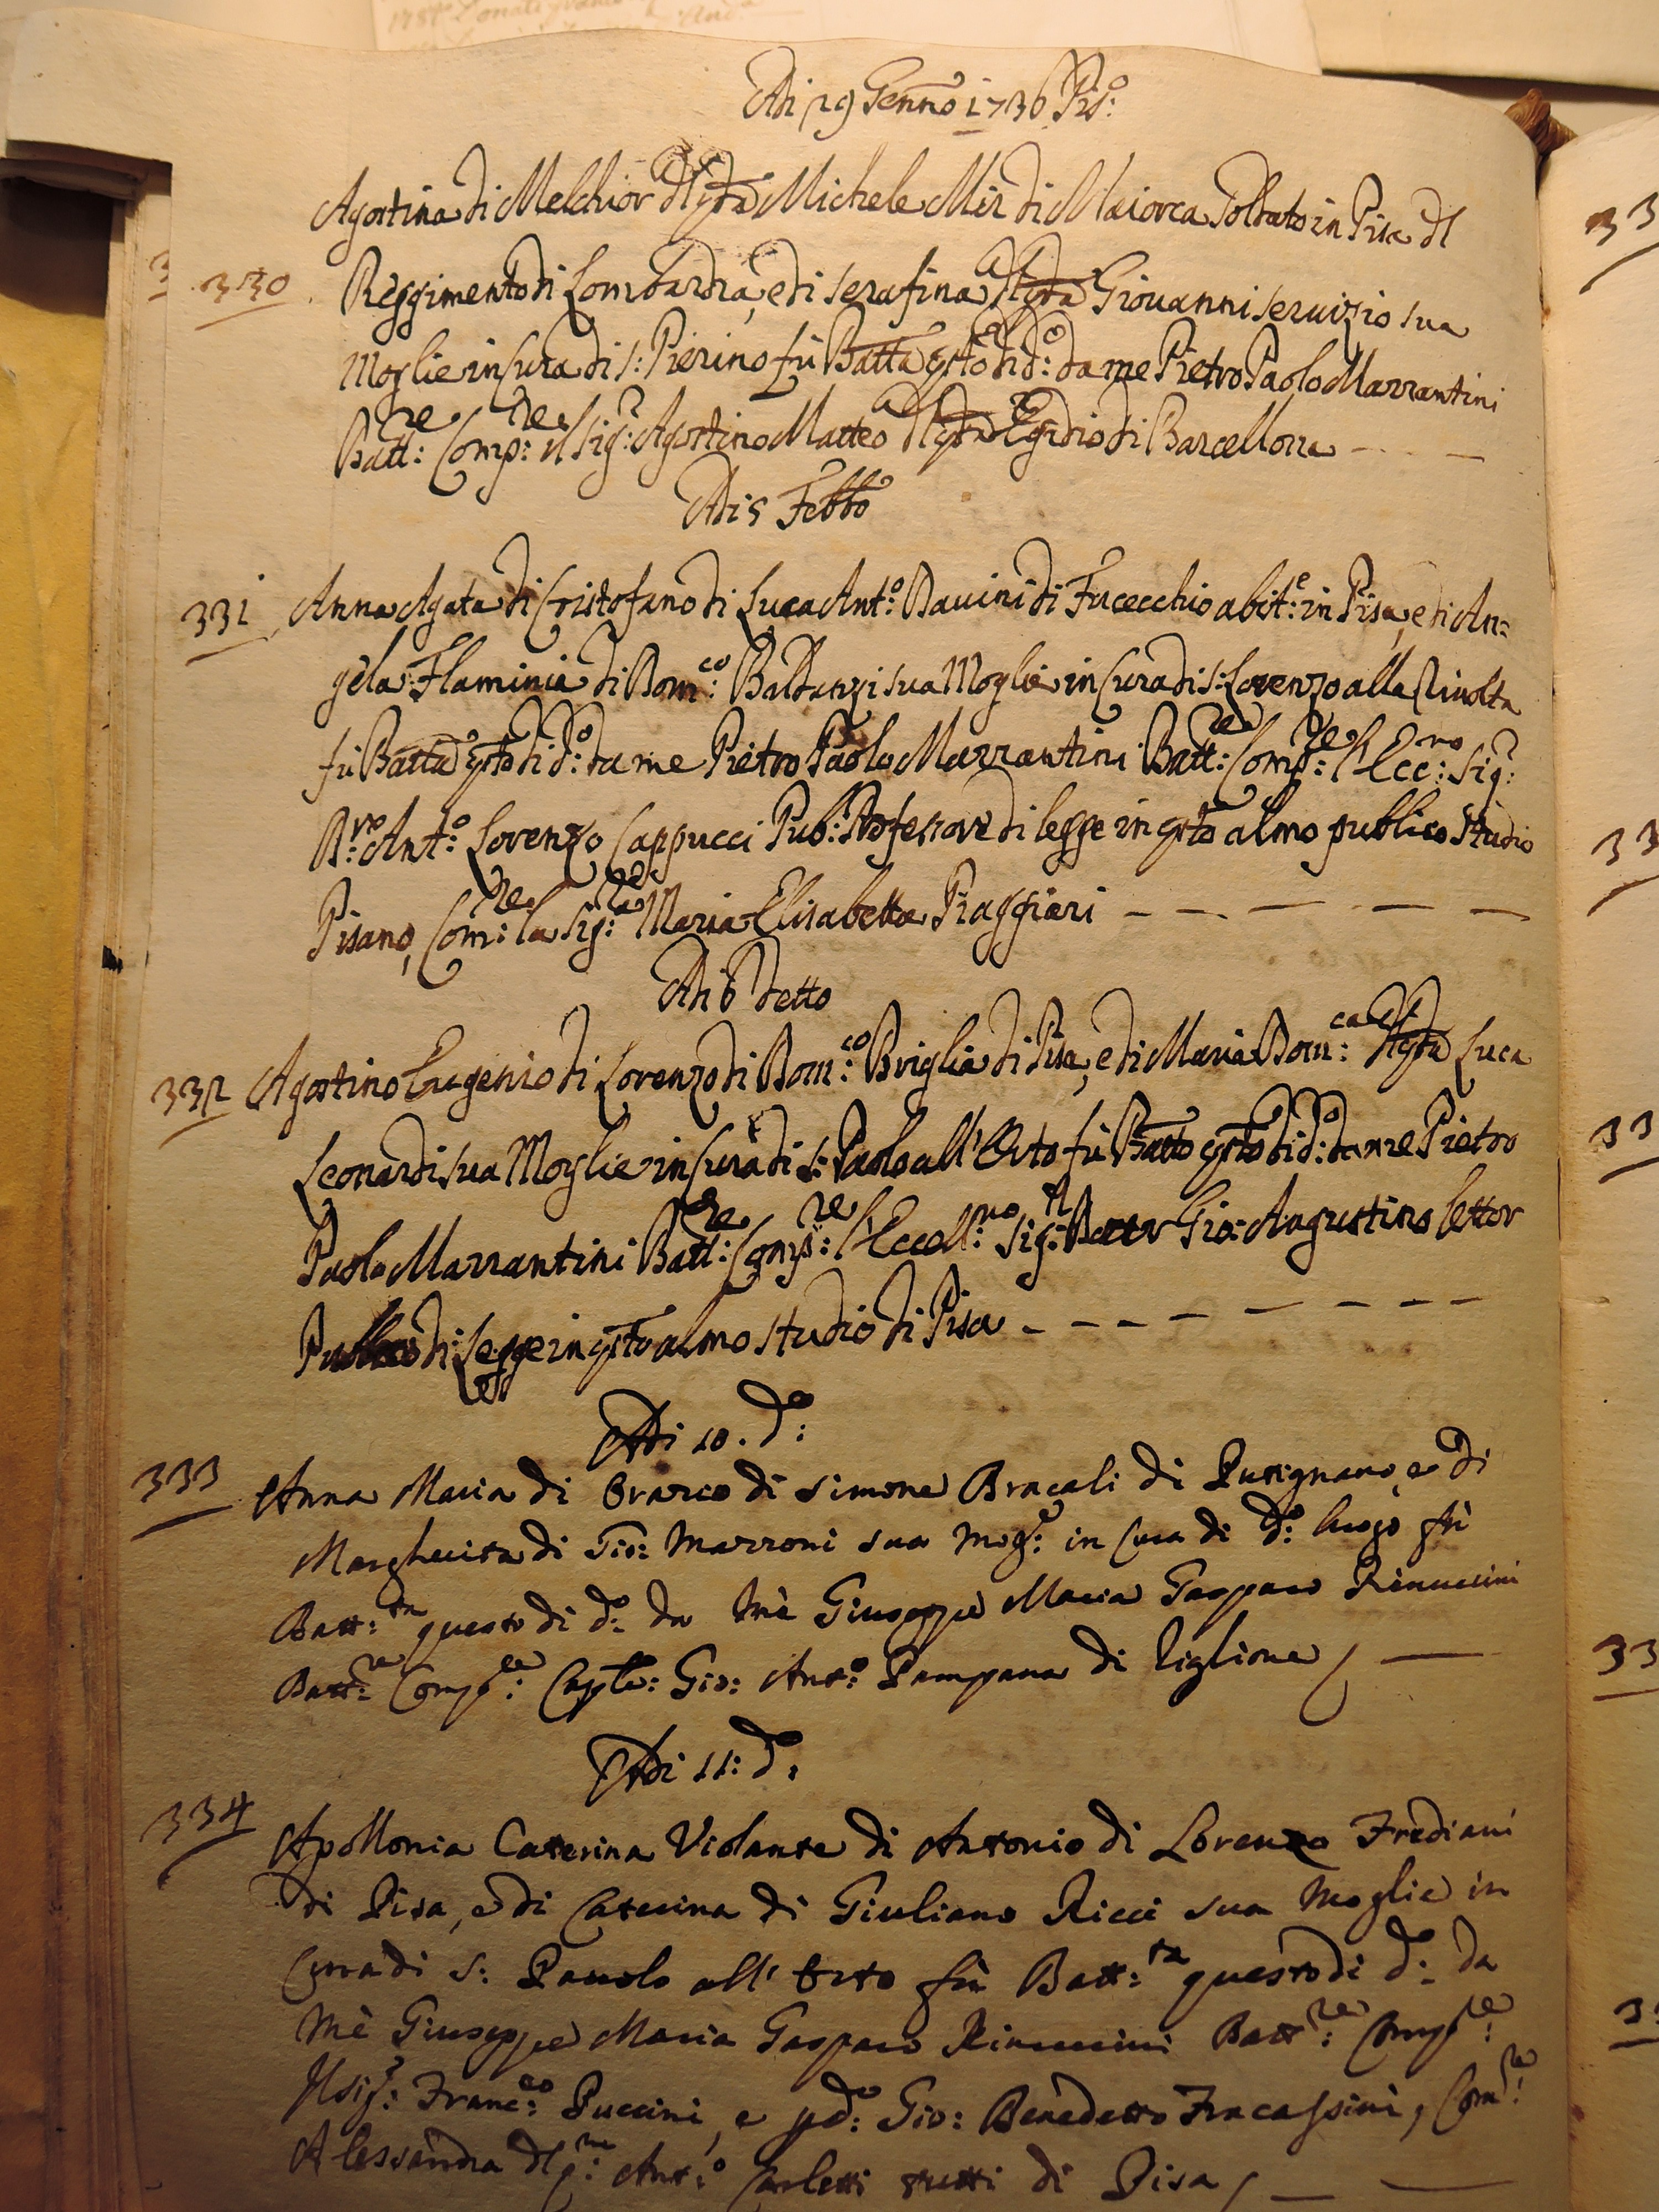 Adi 29 Genno 1736 Pis:o
Agostina di Melchior dl qda Michele Mir di Maiorca Soldato in Pisa dl
330 Reggimento di Lombardia, e di Serafina dl qda Giovanni Servizio sua
Moglie in Cura di S: Pierino fù Batta qsto dì d:o da me Pietro Paolo Marrantini
Batt:re Comp:re Il Sig:r Agostino Matteo dl qda Egidio di Barcellona
Adi 5 Febbo
331 Anna Agata di Cristofano di Luca Ant:o Bavini di Fucecchio abit:e in Pisa, e di An=
gela Flaminia di Dom:co Baldanzi sua Moglie in Cura di S: Lorenzo alla Rivolta
fù Batta qsto dì d:o da me Pietro Paolo Marrantini Batt:re Comp:re l'Ecc:mo Sig:r
D:re Ant:o Lorenzo Cappucci Pub: Professore di legge in qsto almo publico Studio
Pisano, Com:re la Sig:ra Maria Elisabetta Piaggiari
Adi 6 detto
332 Agostino Eugenio di Lorenzo di Dom:co Briglia di Pisa, e di Maria Dom:ca dl qda Luca
Leonardi sua Moglie in Cura di S: Paolo all'Orto fù Batto qsto dì d:o da me Pietro
Paolo Marrantini Batt:re Comp:re l'Eccell:mo Sig:r Dottor Gio: Augustino lettor
Publico di Legge in qsto almo studio di Pisa
Adi 10. d:o
333 Anna Maria di Orazio di Simone Bracali di Putignano, e di
Margherita di Gio: Marroni sua Mog:e in Cura di d:o luogo fù
Batt:ta questo dì d:o da Mè Giuseppe Maria Gasparo Rinuccini
Batt:re Comp:re Capte: Gio: Ant:o Pampana di Riglione
Adi 11: d:
334 Apollonia Catterina Violante di Antonio di Lorenzo Frediani
di Pisa, e di Caterina di Giuliano Ricci sua Moglie in
Cura di S: Pauolo all'Orto fù Batt:ta questo dì d:o da
Mè Giuseppe Maria Gasparo Rinuccini Batt:re Comp:re
Il Sig:r Franc:co Puccini, e Gio: Benedetto Fracassini, Com:re
Alessandra dl Ant:o Carletti tutti di Pisa